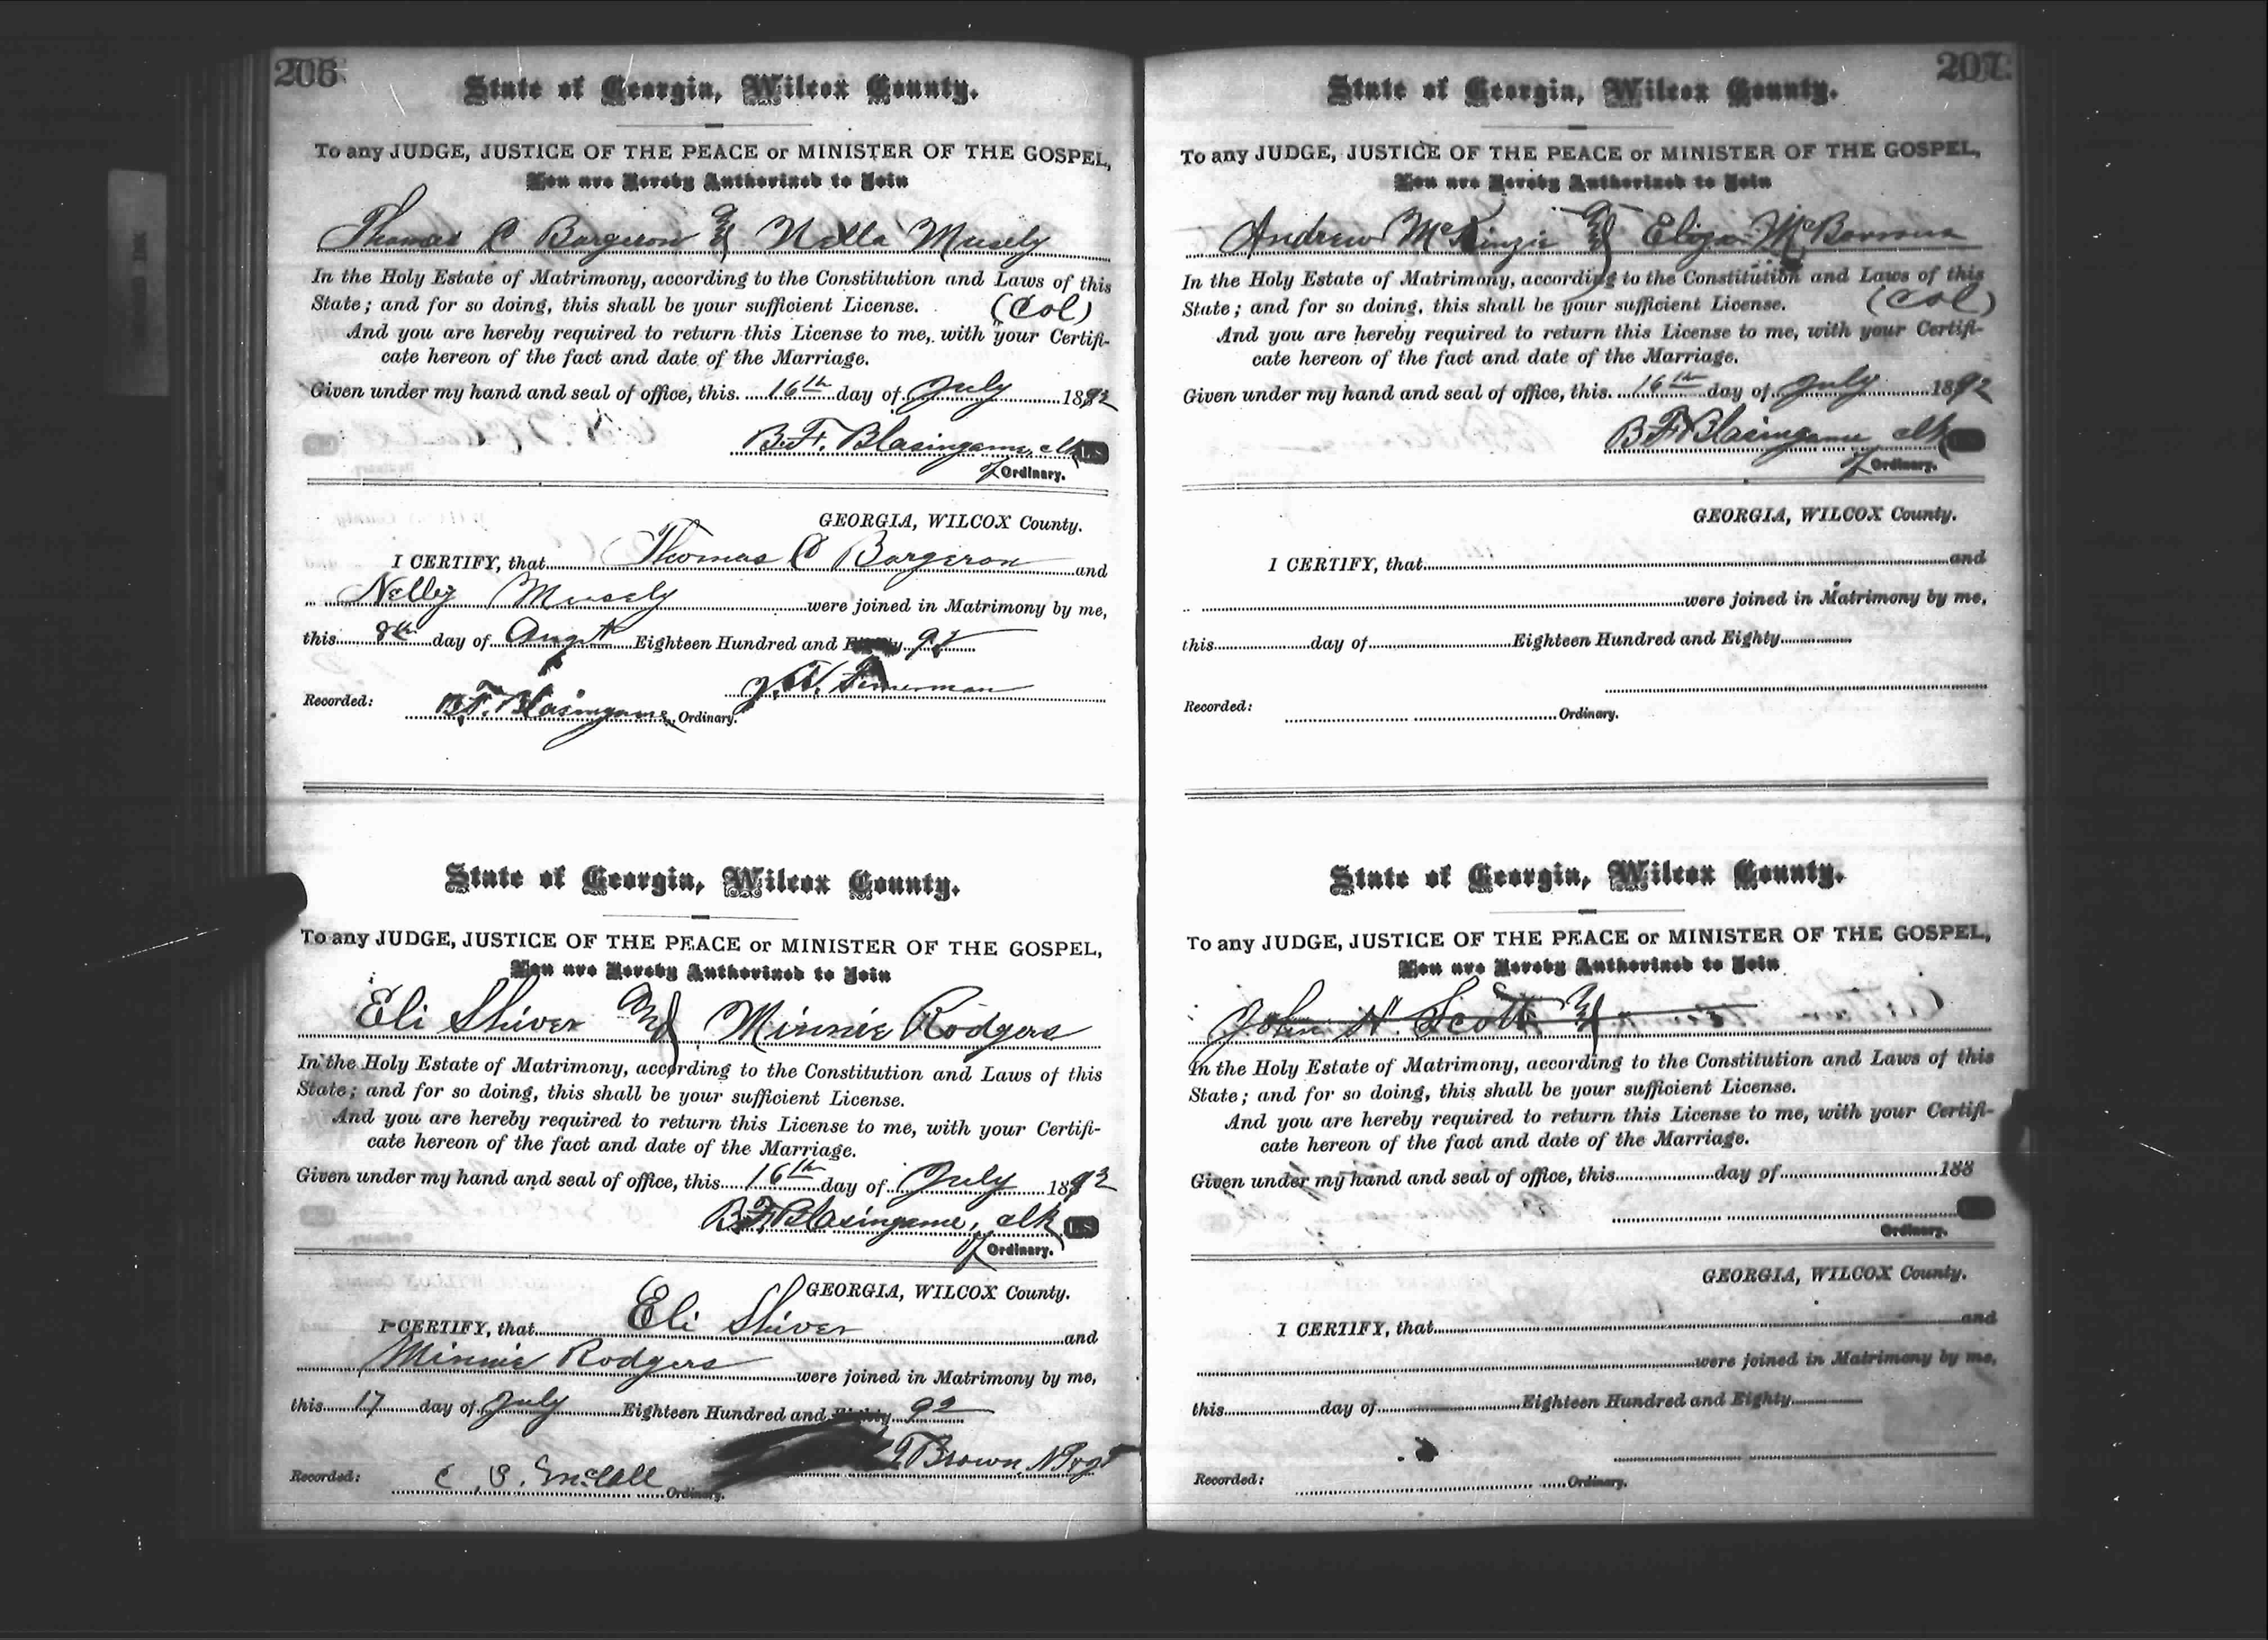 206
State of Georgia, Wilcox County.
To any JUDGE, JUSTICE OF THE PEACE or MINISTER OF THE GOSPEL,
You are Hereby Authorized to Join
Thomas C Bargeron & Nella Musely
In the Holy Estate of Matrimony, according to the Constitution and Laws of this
State; and for so doing, this shall be your sufficient License. (Col)
And you are hereby required to return this License to me, with your Certifi-
cate hereon of the fact and date of the Marriage.
Given under my hand and seal of office, this 16th day of July 1892
B.F. Blasingame, clk L.S
of Ordinary.
GEORGIA, WILCOX County.
I CERTIFY, that Thomas C Bargeron and
Nelly Musely were joined in Matrimony by me,
this 8th day of Augt Eighteen Hundred and Eighty 92
Recorded: B.F. Blasingame, Ordinary.
State of Georgia, Wilcox County.
To any JUDGE, JUSTICE OF THE PEACE or MINISTER OF THE GOSPEL,
You are Hereby Authorized to Join
Eli Shiver and Minnie Rodgers
In the Holy Estate of Matrimony, according to the Constitution and Laws of this
State; and for so doing, this shall be your sufficient License.
And you are hereby required to return this License to me, with your Certifi-
cate hereon of the fact and date of the Marriage.
Given under my hand and seal of office, this 16th day of July 1892
B.F. Blasingame, clk L.S
of Ordinary.
GEORGIA, WILCOX County.
I CERTIFY, that Eli Shiver and
Minnie Rodgers were joined in Matrimony by me,
this 17 day of July Eighteen Hundred and Eighty 92
Brown
Recorded: C. S. McCall Ordinary.
207
State of Georgia, Wilcox County.
To any JUDGE, JUSTICE OF THE PEACE or MINISTER OF THE GOSPEL,
You are Hereby Authorized to Join
Andrew McKinzie & Eliza
In the Holy Estate of Matrimony, according to the Constitution and Laws of this
State; and for so doing, this shall be your sufficient License. (Col)
And you are hereby required to return this License to me, with your Certifi-
cate hereon of the fact and date of the Marriage.
Given under my hand and seal of office, this 16th day of July 1892
B F Blasingame clk
of Ordinary.
GEORGIA, WILCOX County.
I CERTIFY, that and
were joined in Matrimony by me,
this day of Eighteen Hundred and Eighty
Recorded: Ordinary.
State of Georgia, Wilcox County.
To any JUDGE, JUSTICE OF THE PEACE or MINISTER OF THE GOSPEL,
You are Hereby Authorized to Join
John H. Scott &
In the Holy Estate of Matrimony, according to the Constitution and Laws of this
State; and for so doing, this shall be your sufficient License.
And you are hereby required to return this License to me, with your Certifi-
cate hereon of the fact and date of the Marriage.
Given under my hand and seal of office, this day of 188
Ordinary.
GEORGIA, WILCOX County.
I CERTIFY, that and
were joined in Matrimony by me,
this day of Eighteen Hundred and Eighty
Recorded: Ordinary.